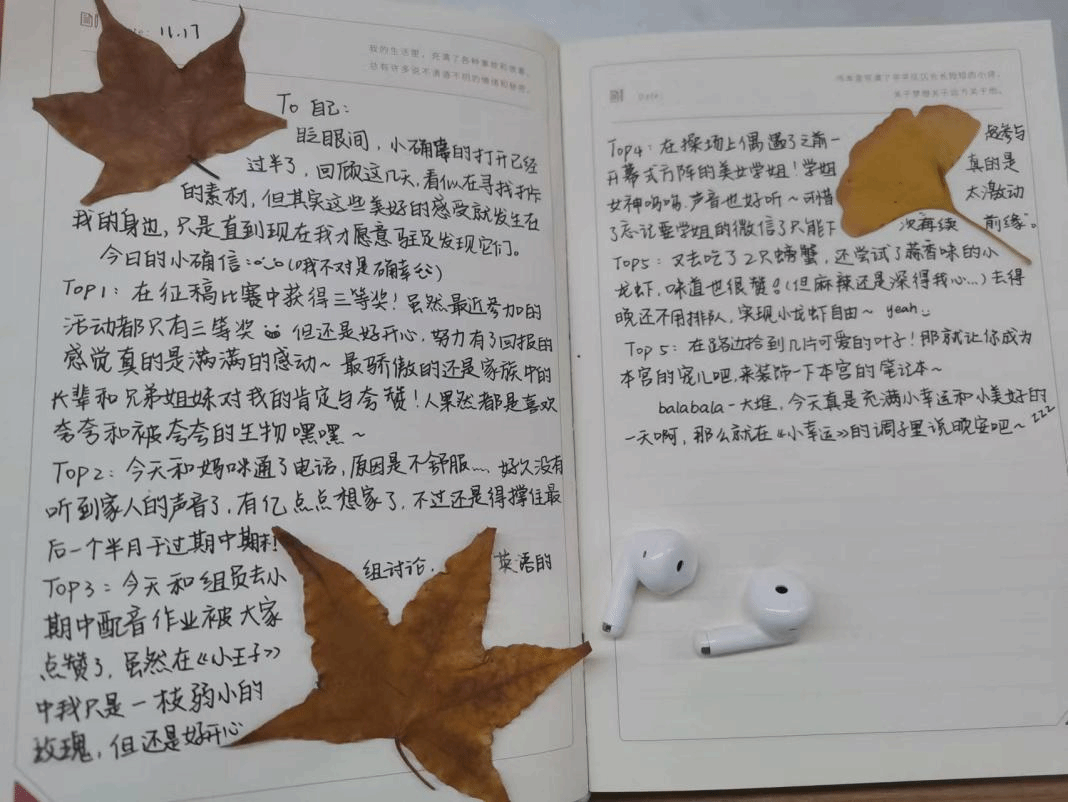 Date: 11.17
我的生活里，充满了各种事故和故事，
总有许多说不清道不明的情绪和秘密。
To 自己：
眨眼间，小确幸的打开已经
过半了，回顾这几天，看似在寻找打卡
的素材，但其实这些美好的感受就发生在
我的身边，只是直到现在我才愿意驻足发现它们。
今日的小确信：(哦不对是确幸
Top1：在征稿比赛中获得三等奖！虽然最近参加的
活动都只有三等奖 但还是好开心，努力有了回报的
感觉真的是满满的感动~ 最骄傲的还是家族中的
长辈和兄弟姐妹对我的肯定与夸赞！人果然都是喜欢
夸夸和被夸夸的生物嘿嘿~
Top2：今天和妈咪通了电话，原因是不舒服…，好久没有
听到家人的声音了，有亿点点想家了，不过还是得撑住最
后一个半月干过期中期末！
Top3：今天和组员去小组讨论，英语的
期中配音作业被大家
点赞了，虽然在《小王子》
中我只是一枝弱小的
玫瑰，但还是好开心
Date:
关于梦想关于远方关于他。
Top4：在操场上偶遇了之前一起参与
开幕式方阵的美女学姐！学姐真的是
女神呜呜，声音也好听~可惜太激动
了忘记要学姐的微信了只能下次再续前缘。
Top5：又去吃了2只螃蟹，还尝试了蒜香味的小
龙虾，味道也很赞！(但麻辣还是深得我心…)去得
晚还不用排队，实现小龙虾自由~ yeah
Top 5：在路边拾到几片可爱的叶子！那就让你成为
本宫的宠儿吧，来装饰一下本宫的笔记本~
balabala一大堆，今天真是充满小幸运和小美好的
一天啊，那么就在《小幸运》的调子里说晚安吧~zzz